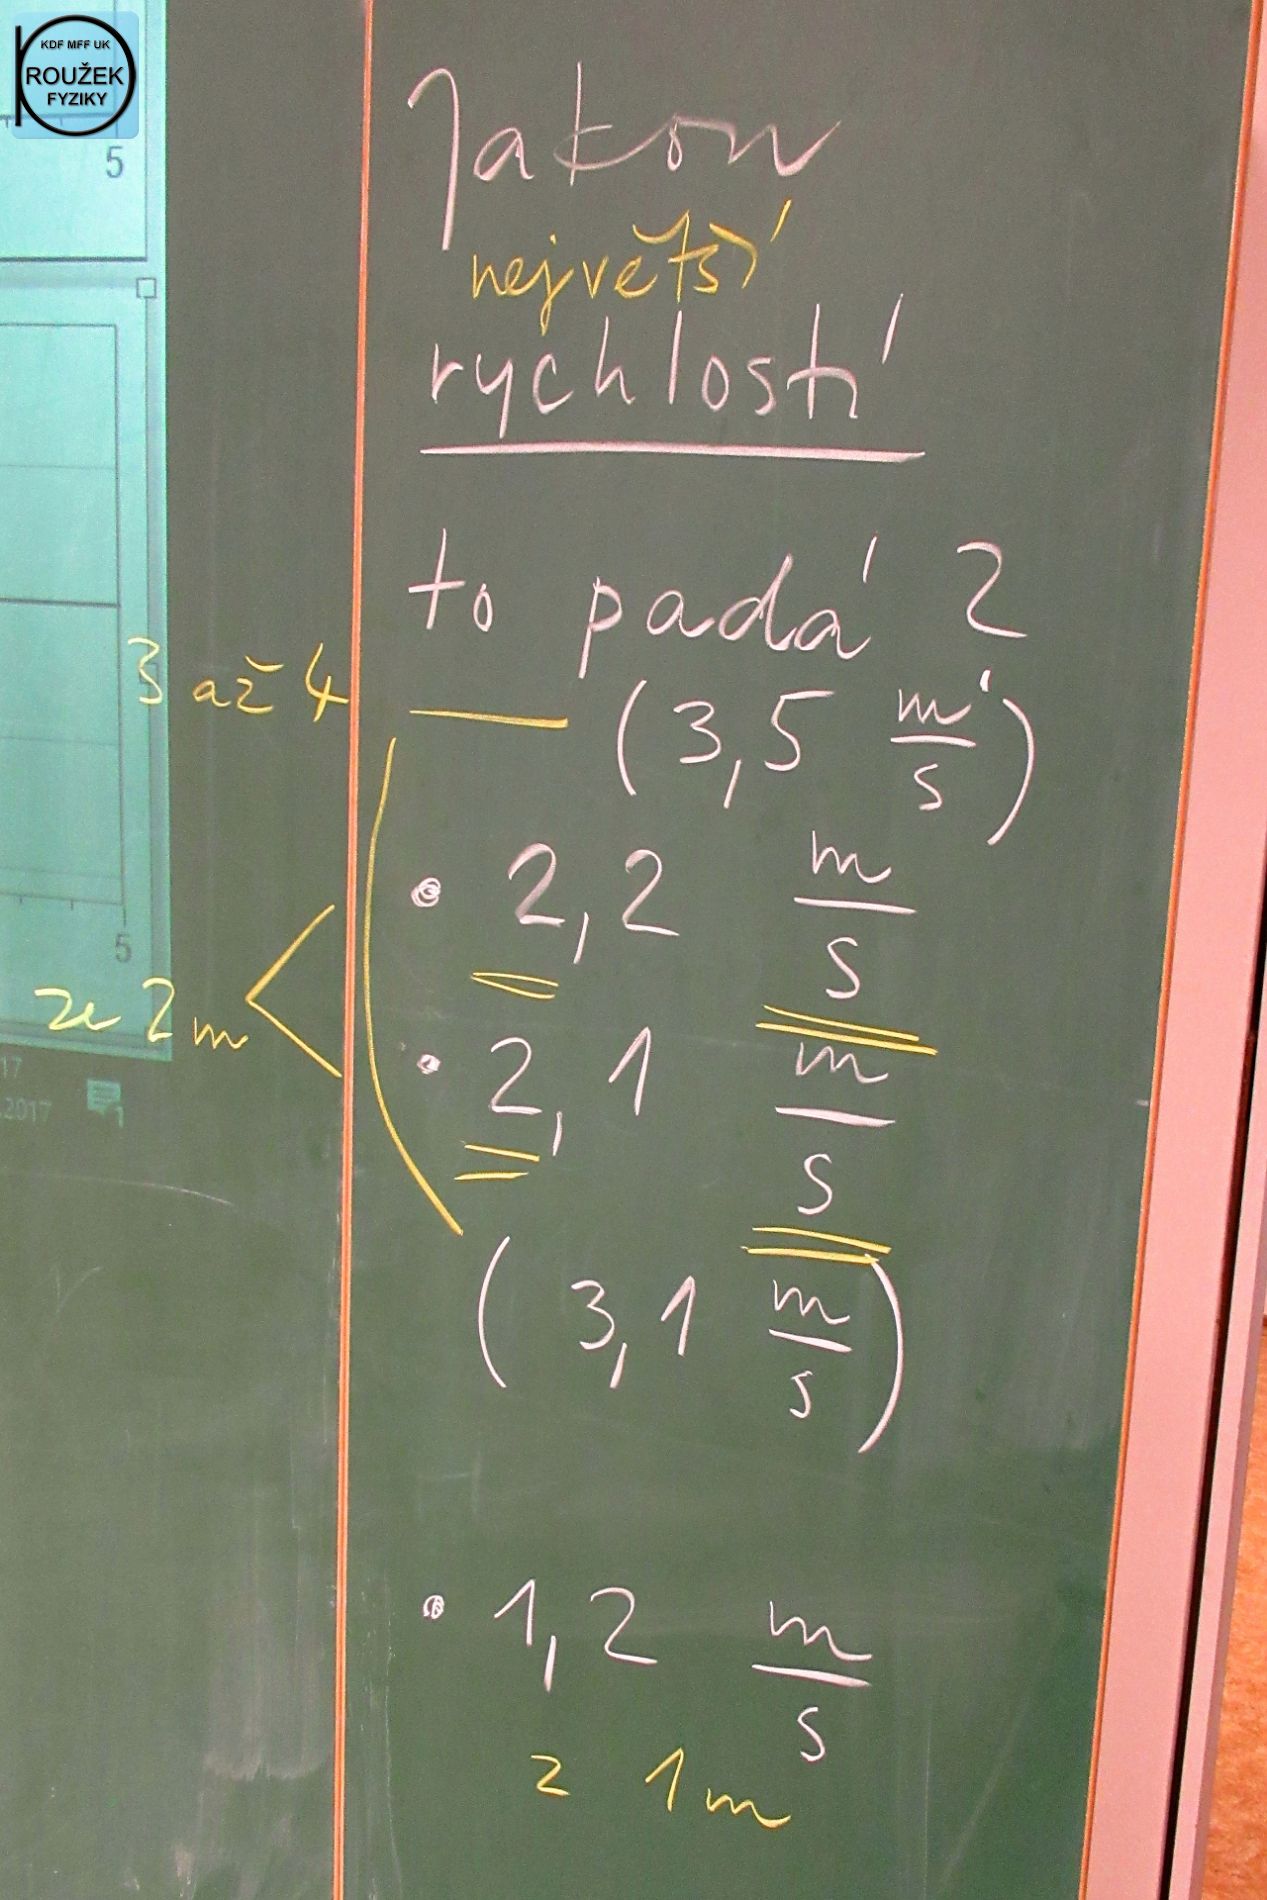 KDF MFF UK
KROUŽEK
FYZIKY
5
Jakou
největší
rychlostí
to padá ?
3 až 4
(3,5 m/s)
• 2,2 m/s
5
ze 2m
• 2,1 m/s
17
.2017
1
(3,1 m/s)
• 1,2 m/s
z 1m